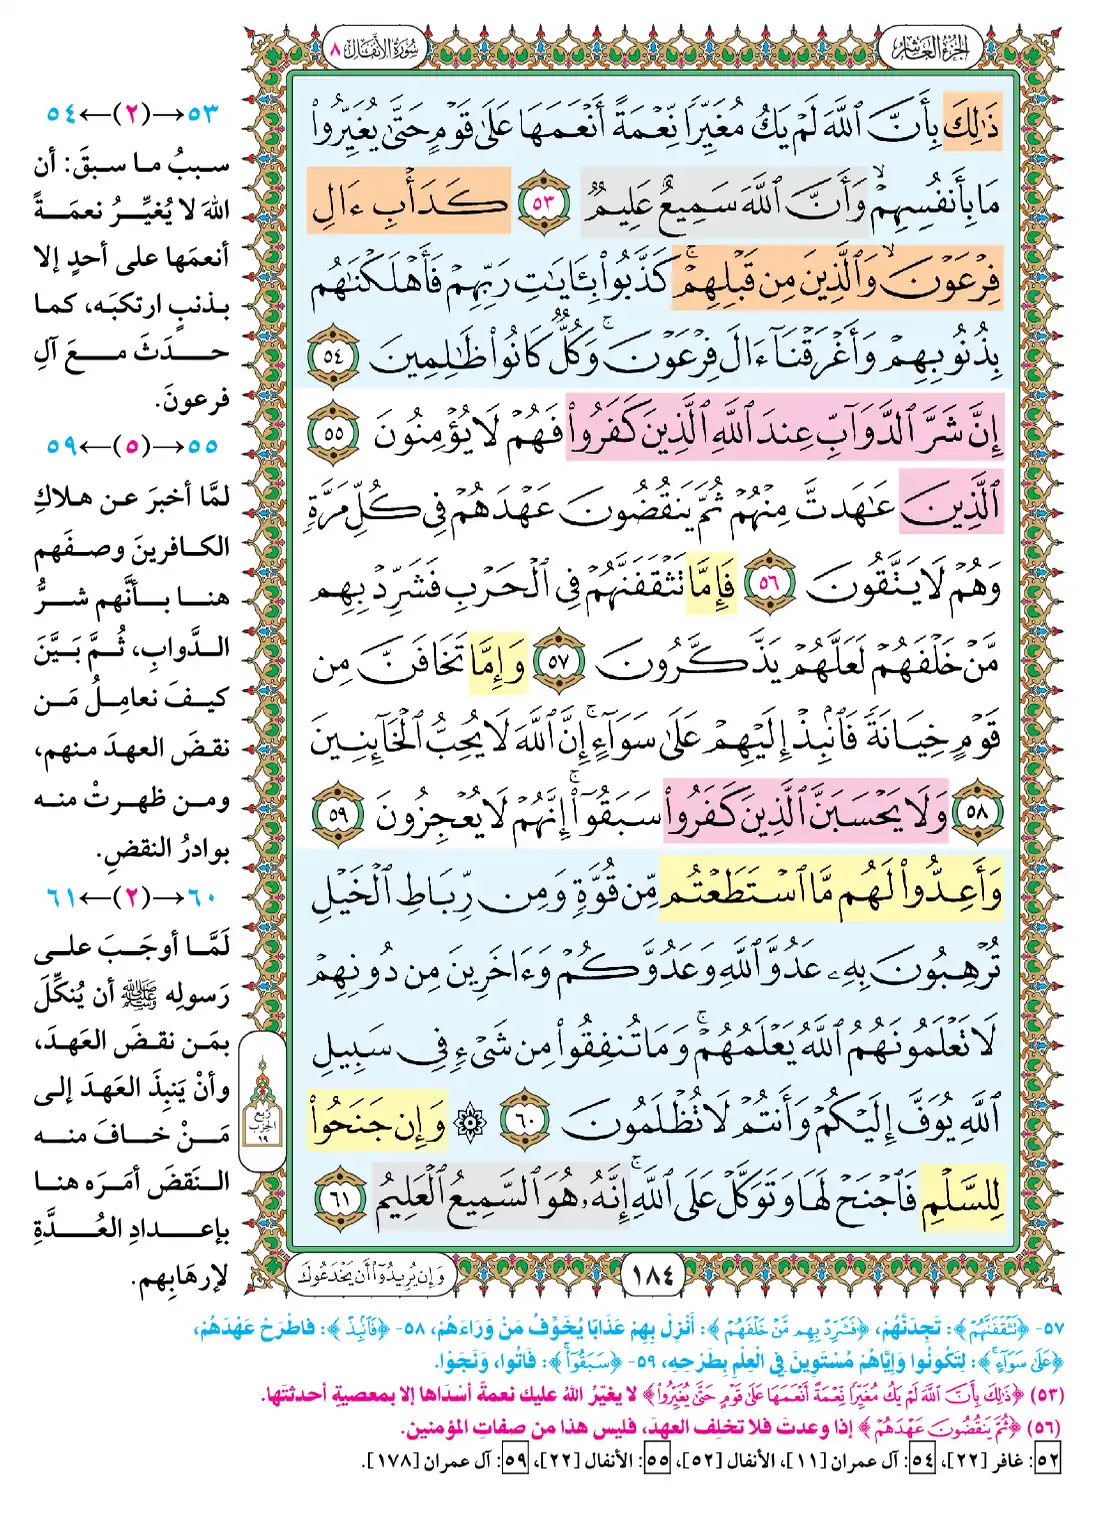 الجزء العاشر
سورة الأنفال ٨
ذَٰلِكَ بِأَنَّ ٱللَّهَ لَمْ يَكُ مُغَيِّرًا نِّعْمَةً أَنْعَمَهَا عَلَىٰ قَوْمٍ حَتَّىٰ يُغَيِّرُوا۟
مَا بِأَنفُسِهِمْ ۙ وَأَنَّ ٱللَّهَ سَمِيعٌ عَلِيمٌ ٥٣ كَدَأْبِ ءَالِ
فِرْعَوْنَ ۙ وَٱلَّذِينَ مِن قَبْلِهِمْ ۚ كَذَّبُوا۟ بِـَٔايَـٰتِ رَبِّهِمْ فَأَهْلَكْنَـٰهُم
بِذُنُوبِهِمْ وَأَغْرَقْنَآ ءَالَ فِرْعَوْنَ ۚ وَكُلٌّ كَانُوا۟ ظَـٰلِمِينَ ٥٤
إِنَّ شَرَّ ٱلدَّوَآبِّ عِندَ ٱللَّهِ ٱلَّذِينَ كَفَرُوا۟ فَهُمْ لَا يُؤْمِنُونَ ٥٥
ٱلَّذِينَ عَـٰهَدتَّ مِنْهُمْ ثُمَّ يَنقُضُونَ عَهْدَهُمْ فِى كُلِّ مَرَّةٍ
وَهُمْ لَا يَتَّقُونَ ٥٦ فَإِمَّا تَثْقَفَنَّهُمْ فِى ٱلْحَرْبِ فَشَرِّدْ بِهِم
مَّنْ خَلْفَهُمْ لَعَلَّهُمْ يَذَّكَّرُونَ ٥٧ وَإِمَّا تَخَافَنَّ مِن
قَوْمٍ خِيَانَةً فَٱنۢبِذْ إِلَيْهِمْ عَلَىٰ سَوَآءٍ ۚ إِنَّ ٱللَّهَ لَا يُحِبُّ ٱلْخَآئِنِينَ
٥٨ وَلَا يَحْسَبَنَّ ٱلَّذِينَ كَفَرُوا۟ سَبَقُوٓا۟ ۚ إِنَّهُمْ لَا يُعْجِزُونَ ٥٩
وَأَعِدُّوا۟ لَهُم مَّا ٱسْتَطَعْتُم مِّن قُوَّةٍ وَمِن رِّبَاطِ ٱلْخَيْلِ
تُرْهِبُونَ بِهِۦ عَدُوَّ ٱللَّهِ وَعَدُوَّكُمْ وَءَاخَرِينَ مِن دُونِهِمْ
لَا تَعْلَمُونَهُمُ ٱللَّهُ يَعْلَمُهُمْ ۚ وَمَا تُنفِقُوا۟ مِن شَىْءٍ فِى سَبِيلِ
ٱللَّهِ يُوَفَّ إِلَيْكُمْ وَأَنتُمْ لَا تُظْلَمُونَ ٦٠ ۞ وَإِن جَنَحُوا۟
لِلسَّلْمِ فَٱجْنَحْ لَهَا وَتَوَكَّلْ عَلَى ٱللَّهِ ۚ إِنَّهُۥ هُوَ ٱلسَّمِيعُ ٱلْعَلِيمُ ٦١
١٨٤
وَإِن يُرِيدُوٓا۟ أَن يَخْدَعُوكَ
ربع
الحزب
١٩
٥٣→(٢)←٥٤
سببُ ما سبقَ: أن
اللهَ لا يُغيِّرُ نعمَةً
أنعمَها على أحدٍ إلا
بذنبٍ ارتكبَه، كما
حدَثَ معَ آلِ
فرعونَ.
٥٥→(٥)←٥٩
لمَّا أخبرَ عن هلاكِ
الكافرينَ وصفَهم
هنا بأنَّهم شرُّ
الدَّوابِ، ثُمَّ بَيَّنَ
كيفَ نعامِلُ مَن
نقضَ العهدَ منهم،
ومن ظهرتْ منه
بوادرُ النقضِ.
٦٠→(٢)←٦١
لَمَّا أوجَبَ على
رَسولِه ﷺ أن يُنكِّلَ
بمَن نقضَ العَهدَ،
وأنْ يَنبِذَ العَهدَ إلى
مَنْ خافَ منه
النَقضَ أمَرَه هنا
بإعدادِ العُدَّةِ
لإرهَابِهم.
٥٧- ﴿تَثْقَفَنَّهُمْ﴾: تَجِدَنَّهُمْ، ﴿فَشَرِّدْ بِهِم مَّنْ خَلْفَهُمْ﴾: أَنْزِلْ بِهِمْ عَذَابًا يُخَوِّفُ مَنْ وَرَاءَهُمْ، ٥٨- ﴿فَٱنۢبِذْ﴾: فَاطْرَحْ عَهْدَهُمْ،
﴿عَلَىٰ سَوَآءٍ﴾: لِتَكُونُوا وَإِيَّاهُمْ مُسْتَوِينَ فِي الْعِلْمِ بِطَرْحِهِ، ٥٩- ﴿سَبَقُوٓا۟﴾: فَاتُوا، وَنَجَوْا.
(٥٣) ﴿ذَٰلِكَ بِأَنَّ ٱللَّهَ لَمْ يَكُ مُغَيِّرًا نِّعْمَةً أَنْعَمَهَا عَلَىٰ قَوْمٍ حَتَّىٰ يُغَيِّرُوا۟﴾ لا يغيّرُ اللهُ عليك نعمةً أسْدَاها إلا بمعصيةٍ أحدثتَها.
(٥٦) ﴿ثُمَّ يَنقُضُونَ عَهْدَهُمْ﴾ إذا وعدتَ فلا تخلِف العهدَ، فليس هذا من صفاتِ المؤمنين.
٥٢: غافر [٢٢]، ٥٤: آل عمران [١١]، الأنفال [٥٢]، ٥٥: الأنفال [٢٢]، ٥٩: آل عمران [١٧٨].